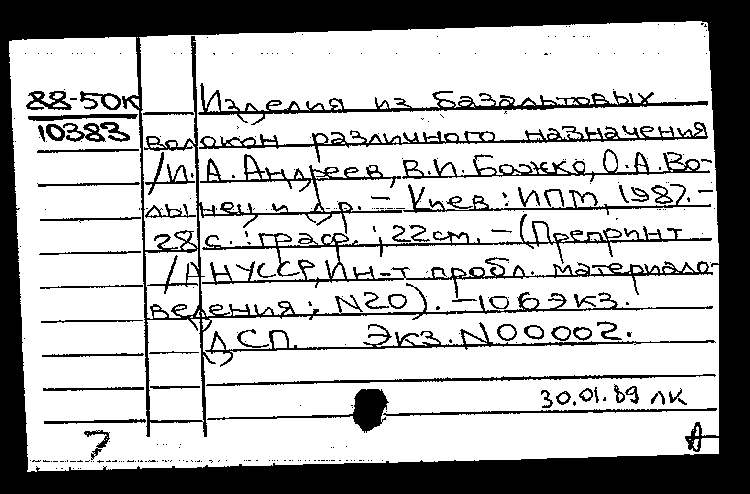 88-50к
10383
Изделия из базальтовых
волокон различного назначения
/И.А.Андреев, В.И.Божко, О.А.Во-
лынец и др. - Киев : ИПМ, 1987.-
28 с. : граф. ; 22 см. - (Препринт
/АНУССР, Ин-т пробл. материало-
ведения ; N20). - 106 экз.
ДСП. Экз. N00002.
30.01.89 ЛК
7
А